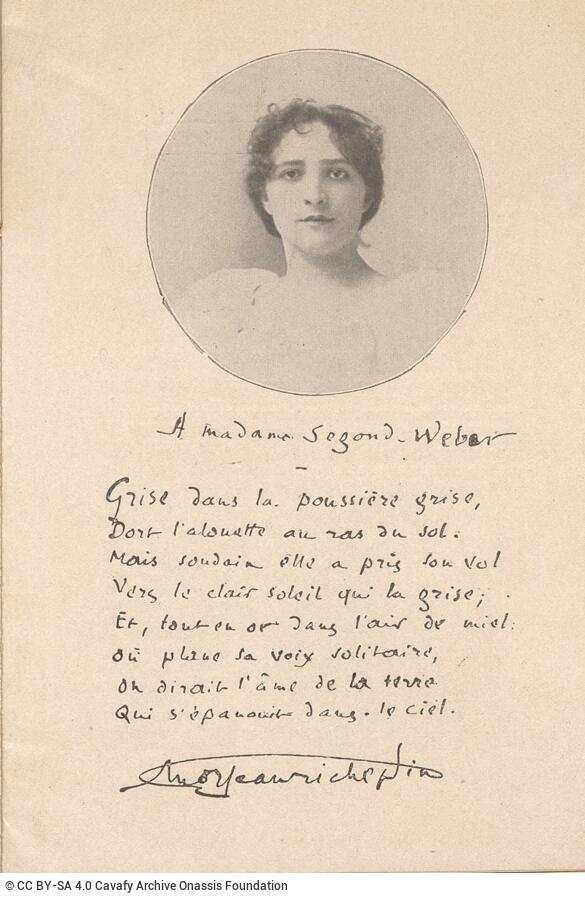 A madame Segond-Weber
Grise dans la poussière grise,
Dort l'alouette au ras du sol.
Mais soudain elle a pris son vol
Vers le clair soleil qui la grise;
Et, tout en or dans l'air de miel
où plane sa voix solitaire,
on dirait l'âme de la terre
Qui s'épanouit dans le ciel.
Jean richepin
© CC BY-SA 4.0 Cavafy Archive Onassis Foundation